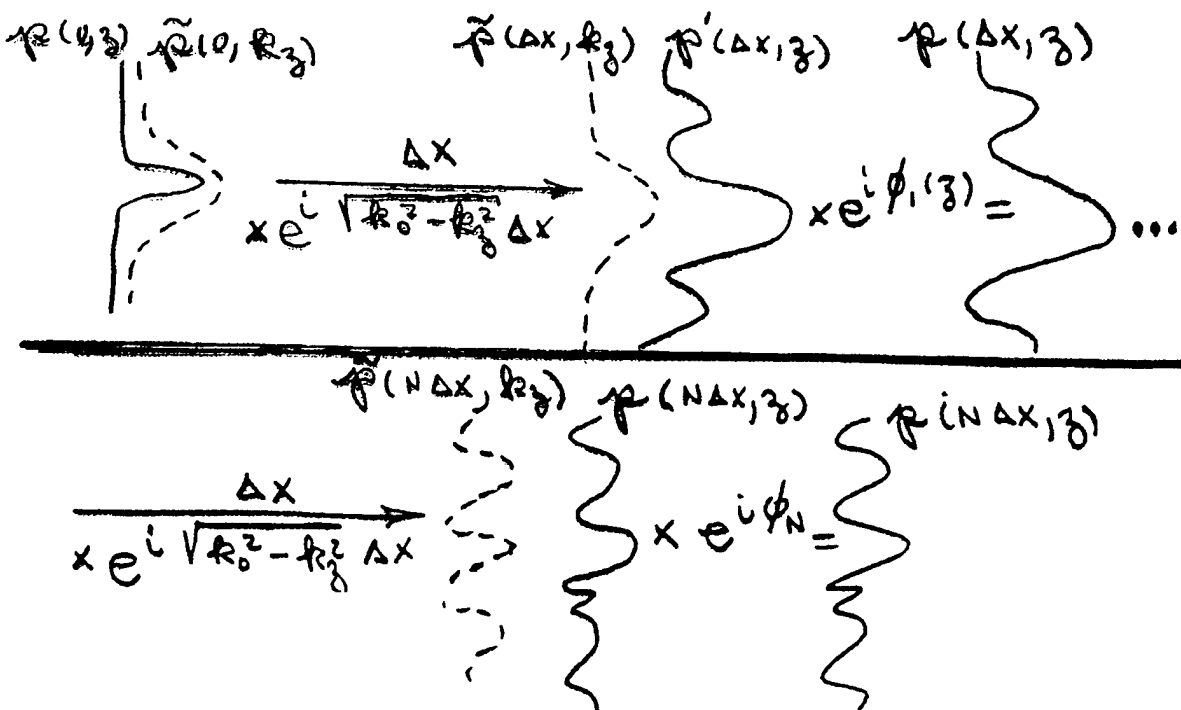 p(0,z) p̃(0, k_z) p̃(Δx, k_z) p'(Δx, z) p(Δx, z)
Δx
× e^{i √(k₀² - k_z²) Δx} × e^{iφ₁(z)} = ...
p̃(NΔx, k_z) p(NΔx, z) p(NΔx, z)
Δx
× e^{i √(k₀² - k_z²) Δx} × e^{iφ_N} =